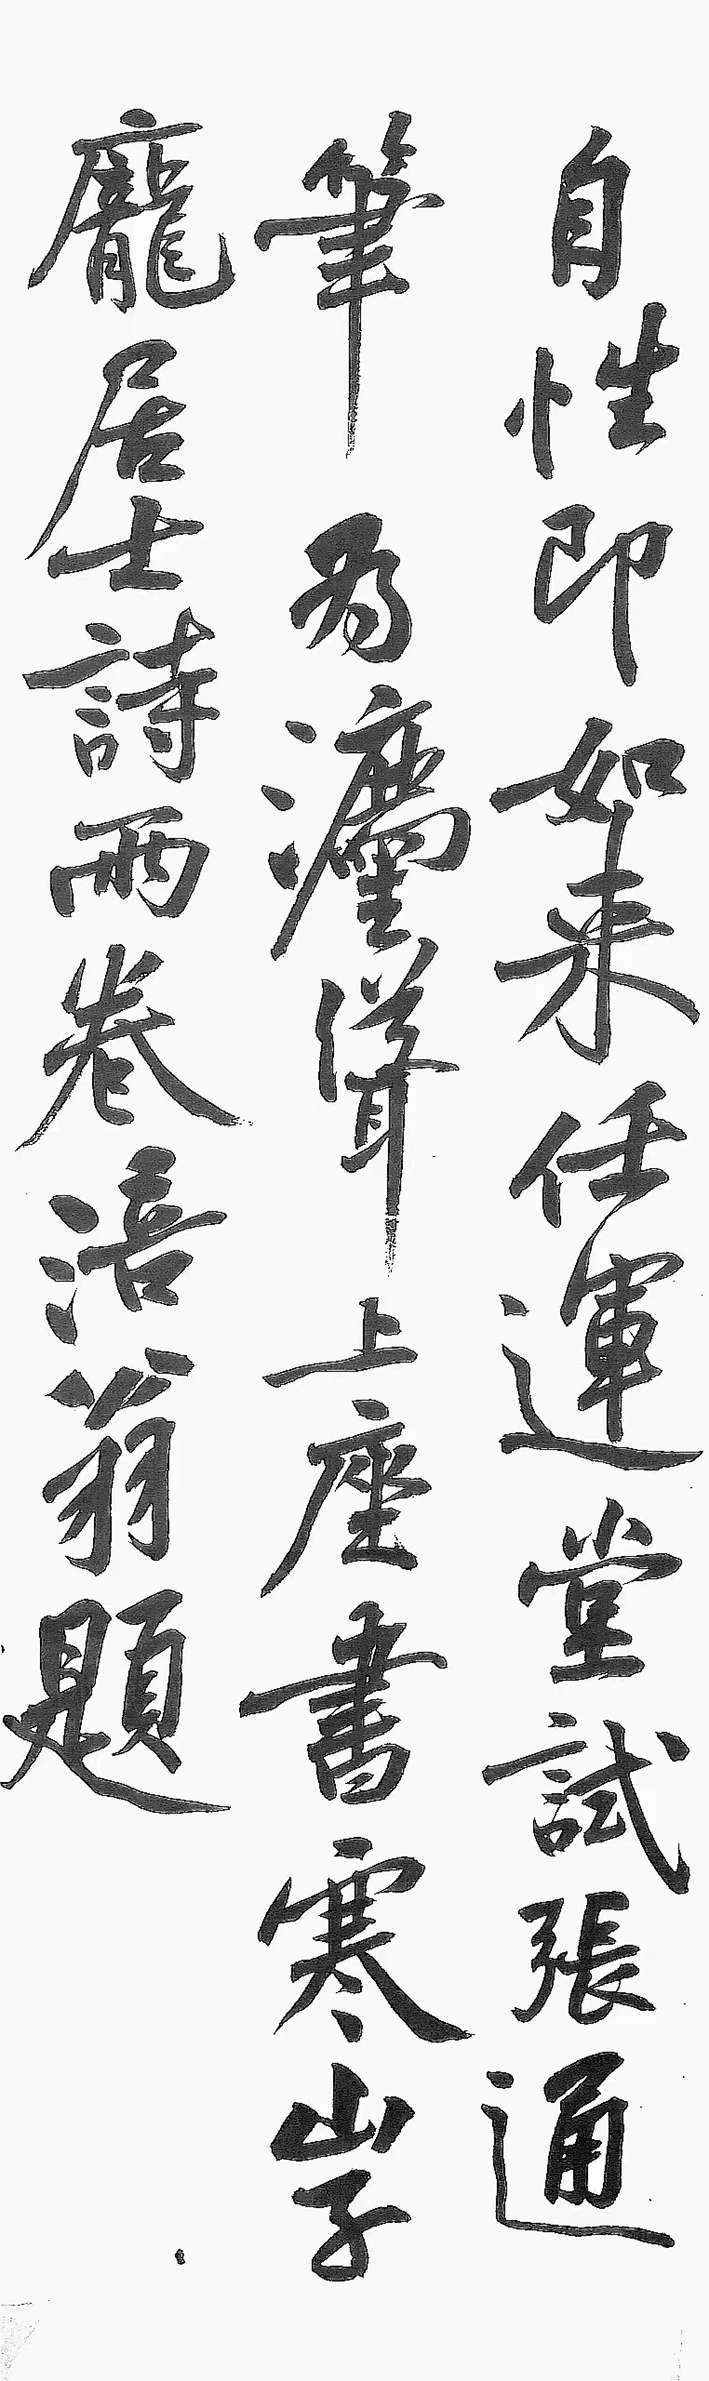 自性即如来任運堂試張通
筆為灋聳上座書寒山子
龐居士詩兩卷涪翁題